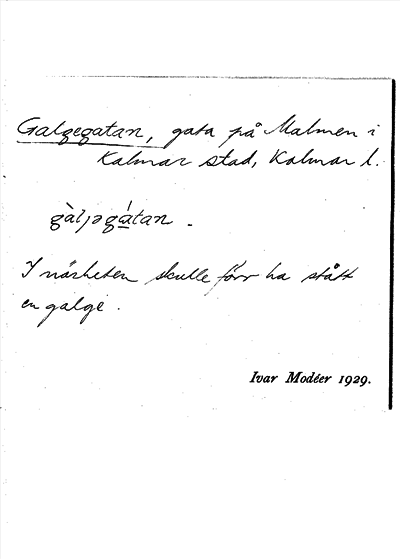 Galgegatan, gata på Malmen i
Kalmar stad, Kalmar l.
gàljəgátan.
I närheten skulle förr ha stått
en galge.
Ivar Modéer 1929.